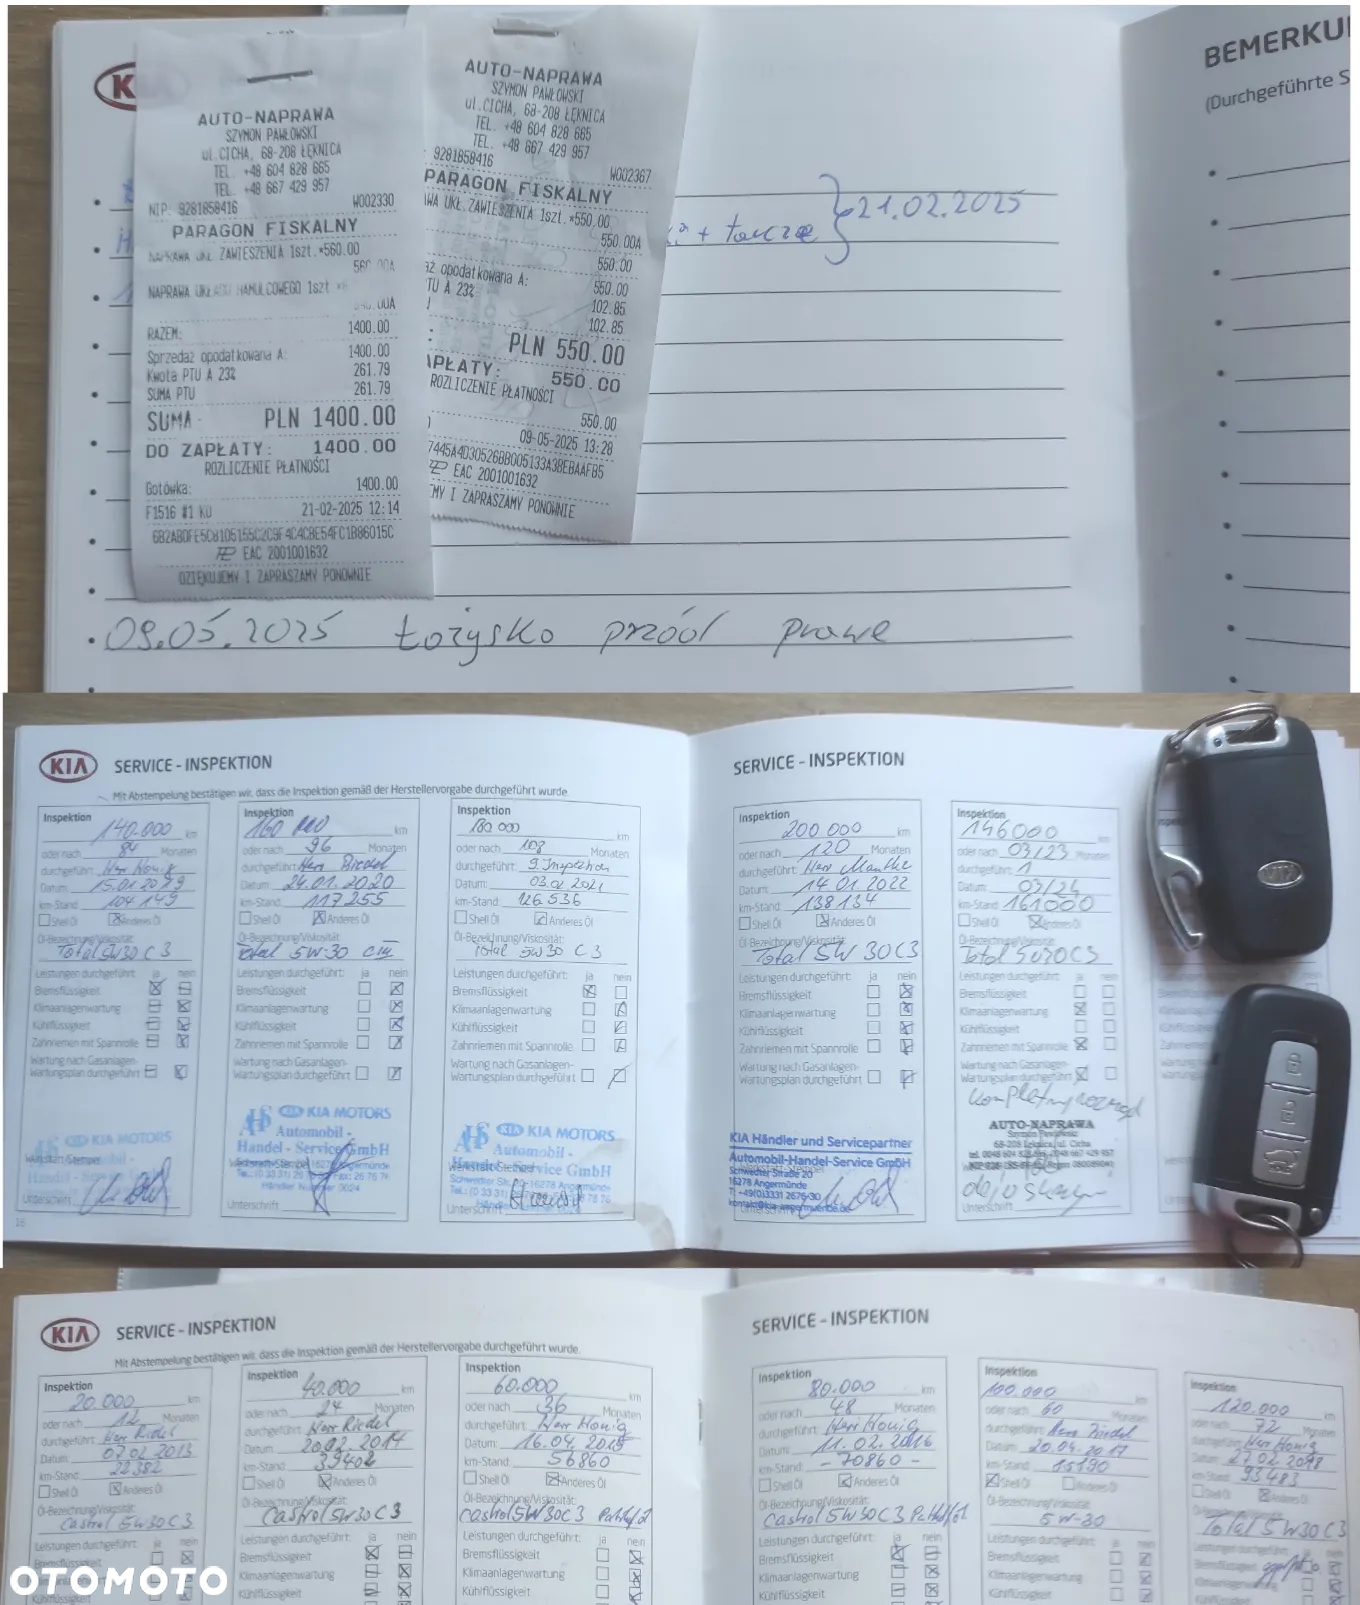 KIA
AUTO-NAPRAWA
SZYMON PAWŁOWSKI
ul.CICHA, 68-208 ŁĘKNICA
TEL. +48 604 828 665
TEL. +48 667 429 957
NIP. 9281858416 W002330
PARAGON FISKALNY
NAPRAWA UKŁ ZAWIESZENIA 1szt.*560.00
560.00A
NAPRAWA UKŁADU HAMULCOWEGO 1szt
RAZEM: 1400.00
Sprzedaż opodatkowana A: 1400.00
Kwota PTU A 23% 261.79
SUMA PTU 261.79
SUMA: PLN 1400.00
DO ZAPŁATY: 1400.00
ROZLICZENIE PŁATNOŚCI
Gotówka: 1400.00
F1516 #1 KU 21-02-2025 12:14
EAC 2001001632
DZIĘKUJEMY I ZAPRASZAMY PONOWNIE
AUTO-NAPRAWA
SZYMON PAWŁOWSKI
ul.CICHA, 68-208 ŁĘKNICA
TEL. +48 604 828 665
TEL. +48 667 429 957
9281858416 W002367
PARAGON FISKALNY
UKŁ.ZAWIESZENIA 1szt.*550.00
550.00A
550.00
opodatkowana A: 550.00
PTU A 23% 102.85
102.85
PLN 550.00
ZAPŁATY: 550.00
ROZLICZENIE PŁATNOŚCI
550.00
09-05-2025 13:28
EAC 2001001632
I ZAPRASZAMY PONOWNIE
+ tarcze } 21.02.2025
09.05.2025 łożysko przód prawe
BEMERKU
(Durchgeführte S
KIA SERVICE - INSPEKTION
Mit Abstempelung bestätigen wir, dass die Inspektion gemäß der Herstellervorgabe durchgeführt wurde.
Inspektion
140.000 km
oder nach 84 Monaten
durchgeführt: Herr Honig
Datum: 15.01.2019
km-Stand: 104149
Shell Öl Anderes Öl
Öl-Bezeichnung/Viskosität:
Total 5W30 C3
Leistungen durchgeführt: ja nein
Bremsflüssigkeit
Klimaanlagenwartung
Kühlflüssigkeit
Zahnriemen mit Spannrolle
Wartung nach Gasanlagen-
Wartungsplan durchgeführt
KIA MOTORS
Werkstatt-Stempel
Unterschrift
16
Inspektion
160 000 km
oder nach 96 Monaten
durchgeführt: Herr Riedel
Datum: 24.01.2020
km-Stand: 117255
Shell Öl Anderes Öl
Öl-Bezeichnung/Viskosität:
Total 5W-30
Leistungen durchgeführt: ja nein
Bremsflüssigkeit
Klimaanlagenwartung
Kühlflüssigkeit
Zahnriemen mit Spannrolle
Wartung nach Gasanlagen-
Wartungsplan durchgeführt
AHS KIA MOTORS
Automobil -
Handel - Service GmbH
Werkstatt-Stempel 16278 Angermünde
Händler Nummer 0024
Unterschrift
Inspektion
180 000 km
oder nach 108 Monaten
durchgeführt: 9. Inspektion
Datum: 03.02.2021
km-Stand: 126.536
Shell Öl Anderes Öl
Öl-Bezeichnung/Viskosität:
Total 5W30 C3
Leistungen durchgeführt: ja nein
Bremsflüssigkeit
Klimaanlagenwartung
Kühlflüssigkeit
Zahnriemen mit Spannrolle
Wartung nach Gasanlagen-
Wartungsplan durchgeführt
AHS KIA MOTORS
Automobil -
Handel - Service GmbH
Werkstatt-Stempel
Unterschrift
SERVICE - INSPEKTION
Inspektion
200 000 km
oder nach 120 Monaten
durchgeführt: Herr
Datum: 14.01.2022
km-Stand: 138134
Shell Öl Anderes Öl
Öl-Bezeichnung/Viskosität:
Total 5W30C3
Leistungen durchgeführt: ja nein
Bremsflüssigkeit
Klimaanlagenwartung
Kühlflüssigkeit
Zahnriemen mit Spannrolle
Wartung nach Gasanlagen-
Wartungsplan durchgeführt
KIA Händler und Servicepartner
Automobil-Handel-Service GmbH
Schwedter Straße 20
16278 Angermünde
T: +49(0)3331 2676-30
kontakt@kia-angermuende.de
Unterschrift
Inspektion
146000 km
oder nach 03/23 Monaten
durchgeführt: 1
Datum: 03/24
km-Stand: 161000
Shell Öl Anderes Öl
Öl-Bezeichnung/Viskosität:
Total
Leistungen durchgeführt: ja nein
Bremsflüssigkeit
Klimaanlagenwartung
Kühlflüssigkeit
Zahnriemen mit Spannrolle
Wartung nach Gasanlagen-
Wartungsplan durchgeführt
kompletny rozrząd
AUTO-NAPRAWA
Szymon Pawłowski
68-208 Łęknica, ul. Cicha
Unterschrift
KIA
KIA SERVICE - INSPEKTION
Mit Abstempelung bestätigen wir, dass die Inspektion gemäß der Herstellervorgabe durchgeführt wurde.
Inspektion
20.000 km
oder nach 12 Monaten
durchgeführt: Herr Riedel
Datum: 07.02.2013
km-Stand: 22382
Shell Öl Anderes Öl
Öl-Bezeichnung/Viskosität:
Castrol 5W30 C3
Leistungen durchgeführt: ja nein
Bremsflüssigkeit
Inspektion
40.000 km
oder nach 24 Monaten
durchgeführt: Herr Riedel
Datum: 20.02.2014
km-Stand: 39402
Shell Öl Anderes Öl
Öl-Bezeichnung/Viskosität:
Castrol 5W30 C3
Leistungen durchgeführt: ja nein
Bremsflüssigkeit
Klimaanlagenwartung
Kühlflüssigkeit
Inspektion
60.000 km
oder nach 36 Monaten
durchgeführt: Herr Honig
Datum: 16.04.2015
km-Stand: 56860
Shell Öl Anderes Öl
Öl-Bezeichnung/Viskosität:
Castrol 5W30C3
Leistungen durchgeführt: ja nein
Bremsflüssigkeit
Klimaanlagenwartung
Kühlflüssigkeit
SERVICE - INSPEKTION
Inspektion
80.000 km
oder nach 48 Monaten
durchgeführt: Herr Honig
Datum: 11.02.2016
km-Stand: - 70860 -
Shell Öl Anderes Öl
Öl-Bezeichnung/Viskosität:
Castrol 5W30C3
Leistungen durchgeführt: ja nein
Bremsflüssigkeit
Klimaanlagenwartung
Kühlflüssigkeit
Inspektion
100.000 km
oder nach 60 Monaten
durchgeführt: Herr Riedel
Datum: 20.04.2017
km-Stand:
Shell Öl Anderes Öl
Öl-Bezeichnung/Viskosität:
5W-30
Leistungen durchgeführt: ja nein
Bremsflüssigkeit
Klimaanlagenwartung
Kühlflüssigkeit
Inspektion
120.000 km
oder nach 72 Monaten
durchgeführt: Herr Honig
Datum: 27.02.2018
km-Stand: 93483
Shell Öl Anderes Öl
Öl-Bezeichnung/Viskosität:
Total 5W30 C3
Leistungen durchgeführt: ja nein
Bremsflüssigkeit
Klimaanlagenwartung
Kühlflüssigkeit
OTOMOTO